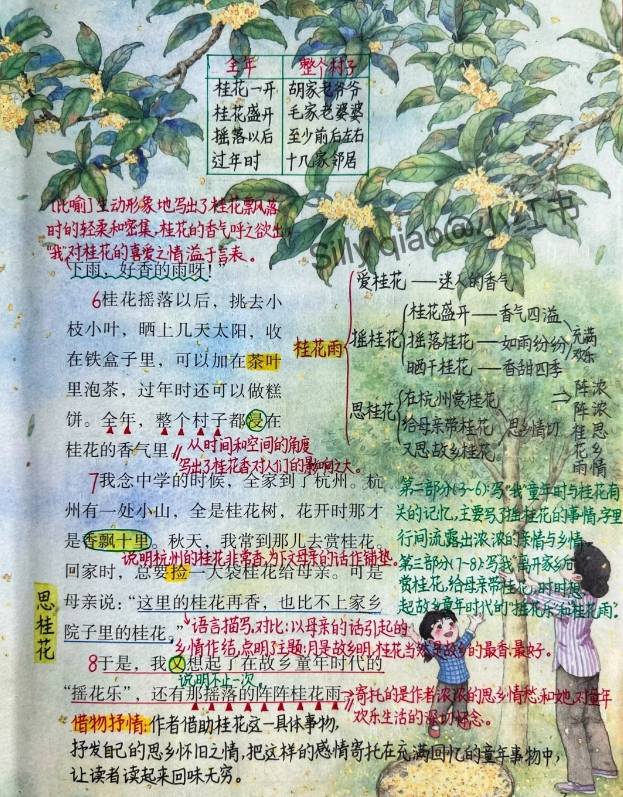 全年 整个村子
桂花一开 胡家老爷爷
桂花盛开 毛家老婆婆
摇落以后 至少前后左右
过年时 十几家邻居
[比喻]生动形象地写出了桂花飘落
时的轻柔和密集,桂花的香气呼之欲出,
"我"对桂花的喜爱之情溢于言表。
下雨,好香的雨呀!"
6桂花摇落以后,挑去小
枝小叶,晒上几天太阳,收
在铁盒子里,可以加在茶叶
里泡茶,过年时还可以做糕
饼。全年,整个村子都浸在
桂花的香气里。
从时间和空间的角度
写出了桂花香对人们的影响之大。
7我念中学的时候,全家到了杭州。杭
州有一处小山,全是桂花树,花开时那才
是香飘十里。秋天,我常到那儿去赏桂花。
说明杭州的桂花非常香,为下文母亲的话作铺垫。
回家时,总要捡一大袋桂花给母亲。可是
母亲说:"这里的桂花再香,也比不上家乡
院子里的桂花。"
语言描写,对比:以母亲的话引起的
乡情作结,点明了主题:月是故乡明,桂花当然是故乡的最香、最好。
8于是,我又想起了在故乡童年时代的
说明不止一次。
"摇花乐",还有那摇落的阵阵桂花雨。
寄托的是作者浓浓的思乡情愁和她对童年
欢乐生活的深切怀念。
借物抒情:作者借助桂花这一具体事物,
抒发自己的思乡怀旧之情,把这样的感情寄托在充满回忆的童年事物中,
让读者读起来回味无穷。
思桂花
桂花雨
爱桂花——迷人的香气
摇桂花
桂花盛开——香气四溢
摇落桂花——如雨纷纷
晒干桂花——香甜四季
充满
欢乐
思桂花
在杭州赏桂花
给母亲带桂花
又思故乡桂花
思乡情切
阵阵桂花雨
浓浓思乡情
第二部分(3~6):写"我"童年时与桂花有
关的记忆,主要写了摇桂花的事情,字里
行间流露出浓浓的亲情与乡情。
第三部分(7~8):写"我"离开家乡后
赏桂花,给母亲带桂花,时时想
起故乡童年时代的"摇花乐"和"桂花雨"。
Silly qiao@小红书